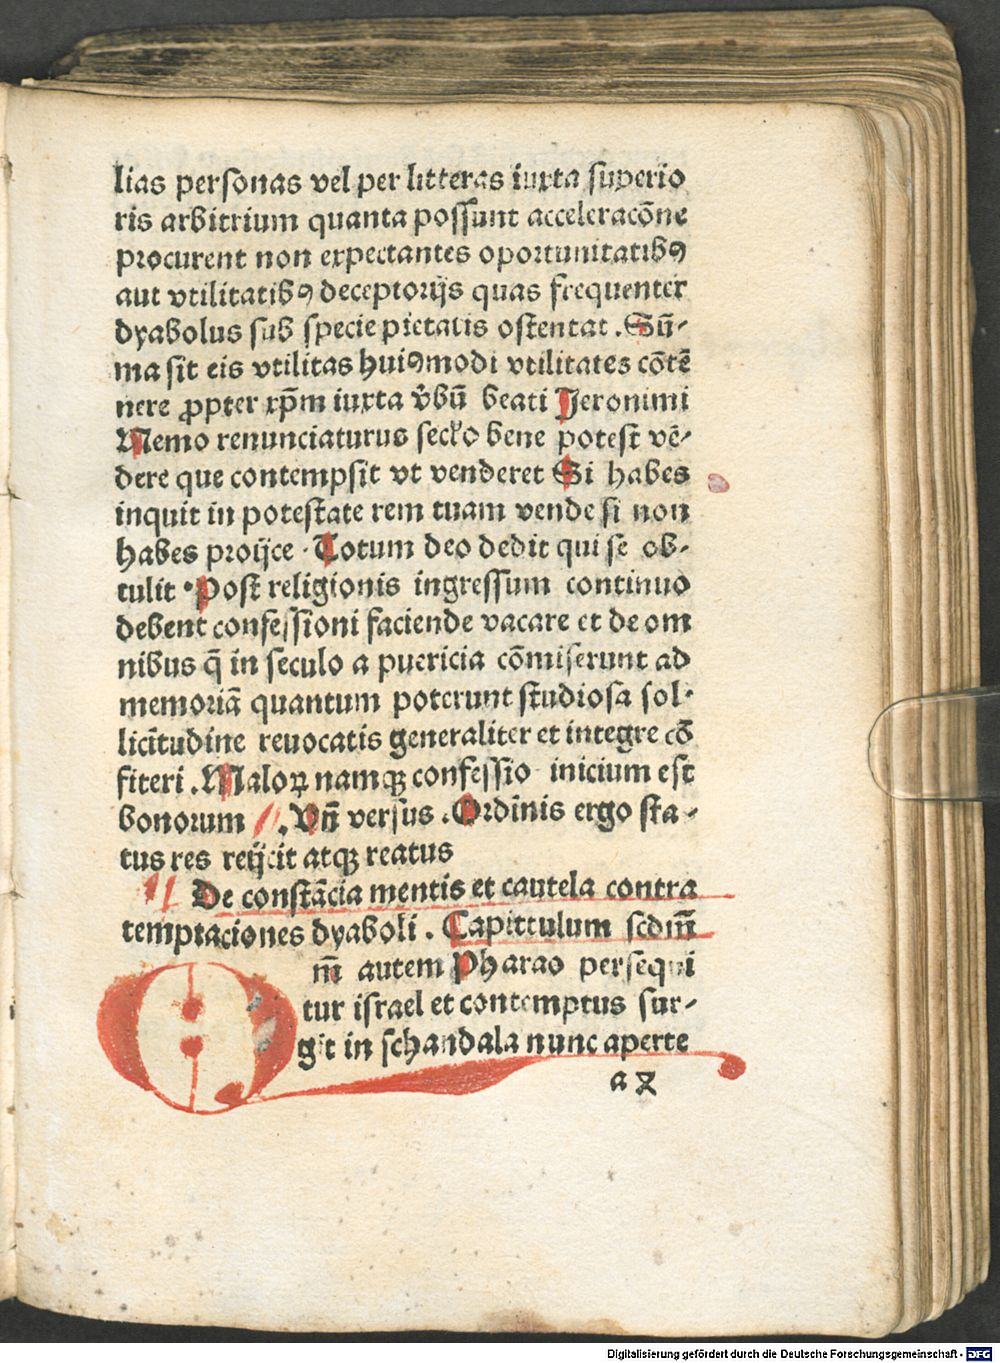 lias personas vel per litteras iuxta superio
ris arbitrium quanta possunt acceleracōne
procurent non expectantes oportunitatibꝰ
aut vtilitatibꝰ deceptorijs quas frequenter
dyabolus sub specie pietatis ostentat . Sū-
ma sit eis vtilitas huiꝰmodi vtilitates cōtē
nere ꝓpter xp̄m iuxta v̓bū beati Jeronimi
Nemo renunciaturus secło bene potest vē-
dere que contempsit vt venderet Si habes
inquit in potestate rem tuam vende si non
habes proijce . Totum deo dedit qui se ob-
tulit . Post religionis ingressum continuo
debent confessioni faciende vacare et de om
nibus q̄ in seculo a puericia cōmiserunt ad
memoriā quantum poterunt studiosa sol-
licitudine reuocatis generaliter et integre cō
fiteri . Maloꝝ namqꝫ confessio inicium est
bonorum . Vn̄ versus . Ordinis ergo sta-
tus res reijcit atqꝫ reatus
De constācia mentis et cautela contra
temptaciones dyaboli . Capittulum scdm̄
m̄ autem Pharao persequi
tur israel et contemptus sur-
git in schandala nunc aperte
a
Digitalisierung gefördert durch die Deutsche Forschungsgemeinschaft - DFG